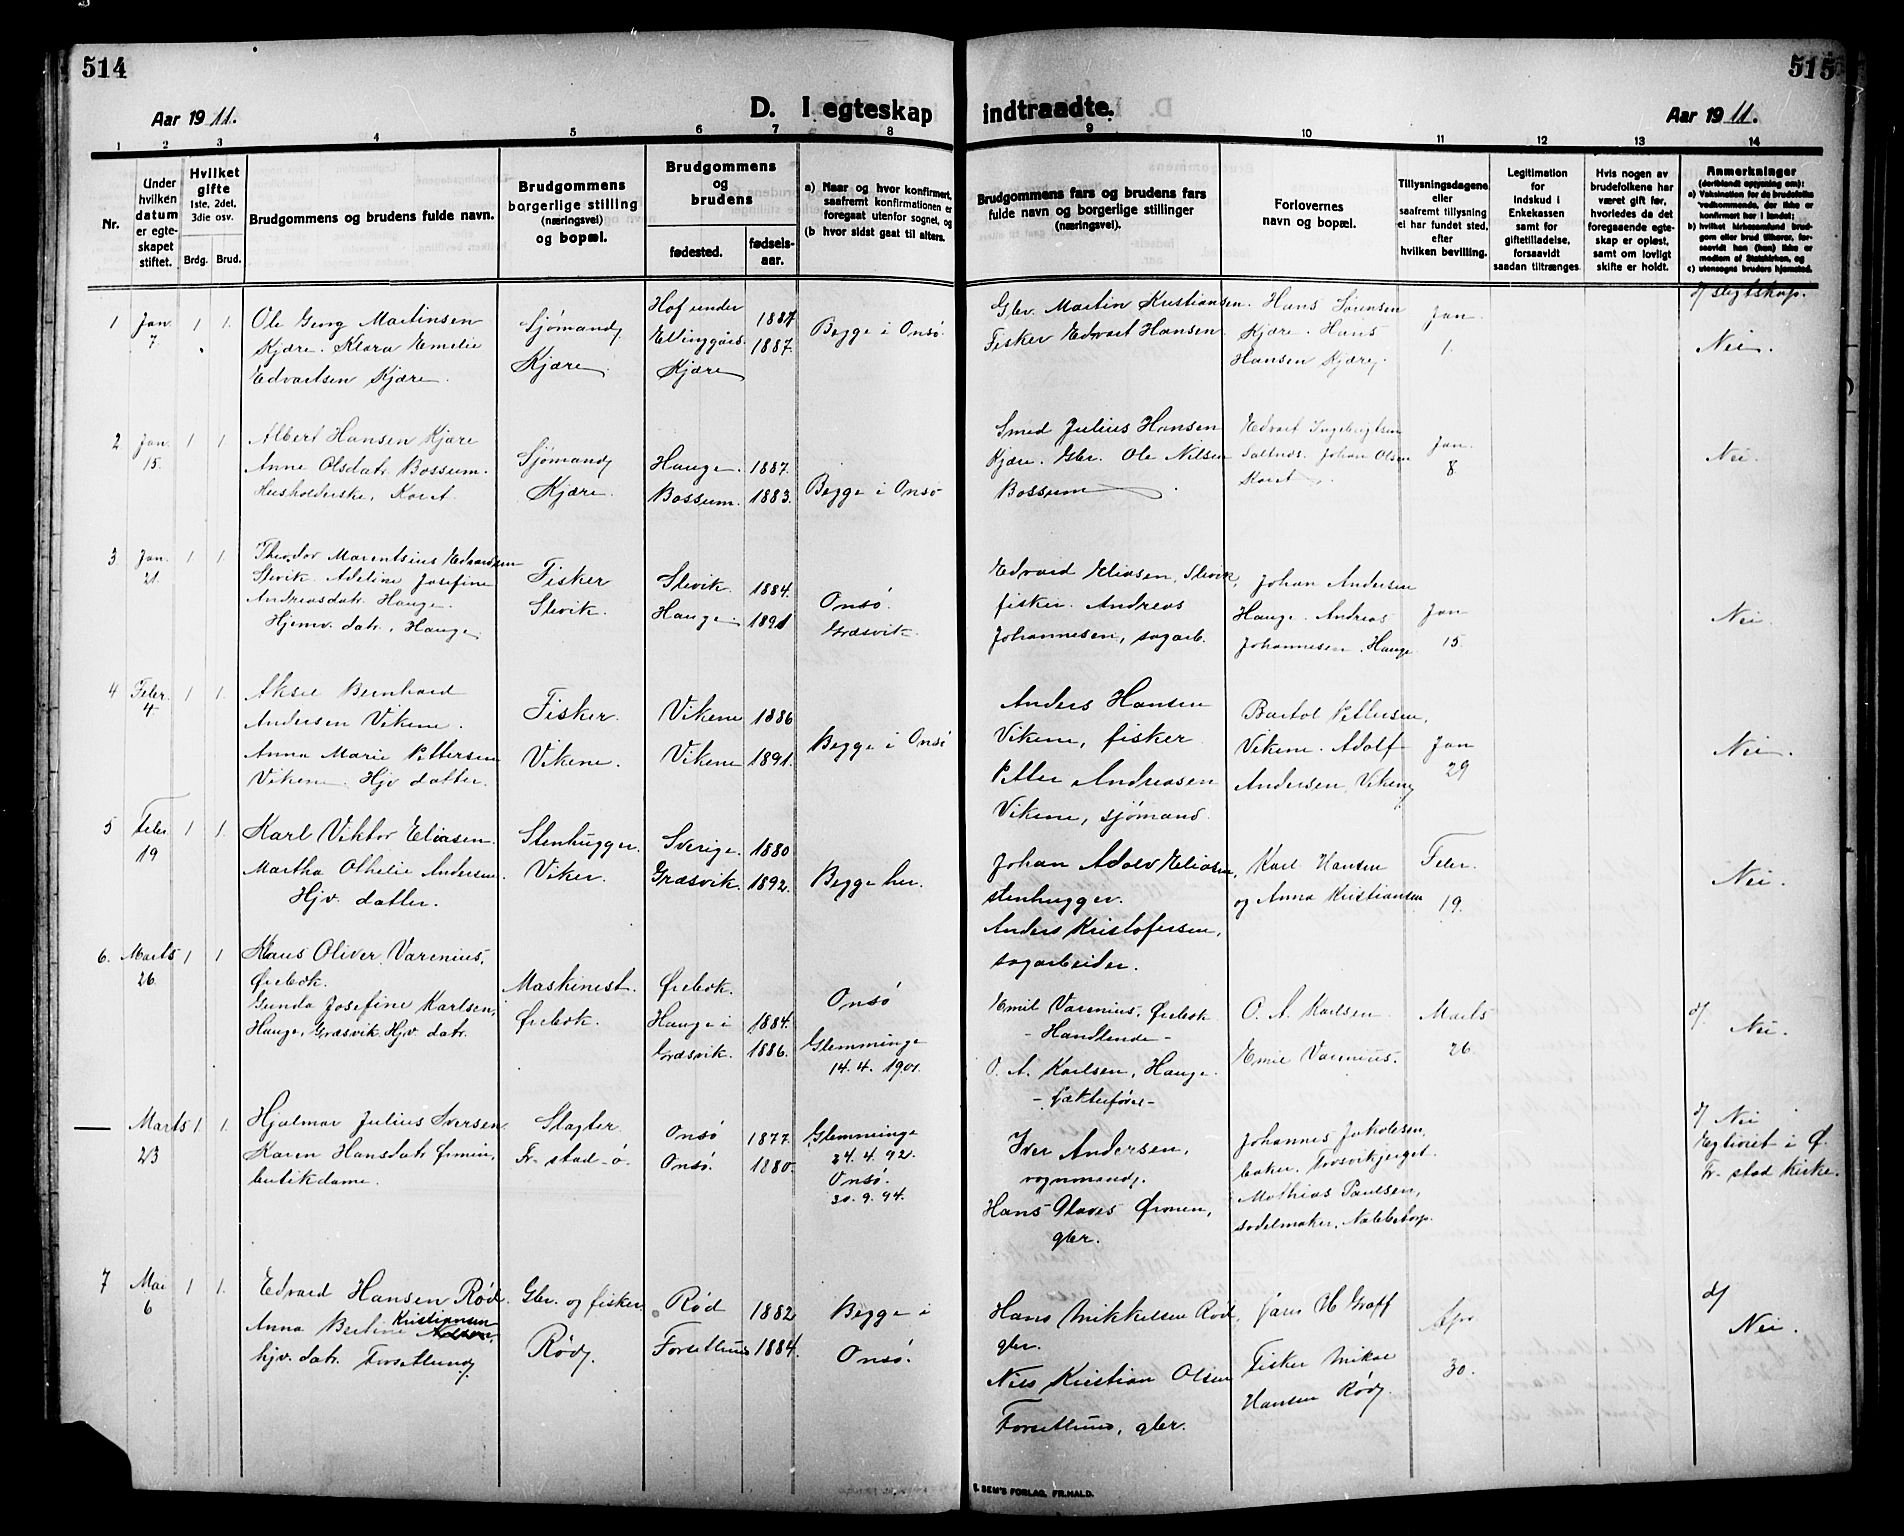 514
515
Aar 1911.
D. I egteskap
indtraadte.
Aar 1911.
1 2 3 4 5 6 7 8 9 10 11 12 13 14
Nr.
Under hvilken datum er egte-skapet stiftet.
Hvilket gifte 1ste, 2det, 3die osv.
Brdg. Brud.
Brudgommens og brudens fulde navn.
Brudgommens borgerlige stilling (næringsvei) og bopæl.
Brudgommens og brudens
fødested.
fødsels-aar.
a) Naar og hvor konfirmert, saafremt konfirmationen er foregaat utenfor sognet, og
(b hvor sidst gaat til alters.
Brudgommens fars og brudens fars fulde navn og borgerlige stillinger (næringsvei).
Forlovernes navn og bopæl.
Tillysningsdagene eller saafremt tillysning ei har fundet sted, efter hvilken bevilling.
Legitimation for indskud i Enkekassen samt for giftetilladelse, forsaavidt saadan tiltrænges
Hvis nogen av brudefolkene har været gift før, hvorledes da det foregaaende egte-skap er opløst, samt om lovligt skifte er holdt.
Anmerkninger (deriblandt oplysning om):
a) Vaksination for de brudefolks vedkommende, der ikke er konfirmert her i landet;
b) hvilket kirkesamfund brud-gom eller brud tilhører, for-saavidt han (hun) ikke er medlem av Statskirken, og
c) utensogns bruders hjemsted.
1 Jan. 7 1 1.
Ole Georg Martinsen
Kjære. Klara Emelie
Edvartsen Kjære.
Sjømand
Kjære
Hof under
Ellinggård
Kjære
1887
1887.
Begge i Onsø.
Gbr. Martin Kristiansen.
Fisker Edvart Hansen
Hans Sørensen
Kjære. Hans
Hansen Kjære
Jan. 1.
d/ slegtskap.
Nei.
2 Jan. 15. 1 1
Albert Hansen Kjære
Anne Olsdatr Bossum.
Husholderske, Koret.
Sjømand
Kjære.
Hauge. 1887.
Bossum. 1883.
Begge i Onsø
Smed Julius Hansen
Kjære. Gbr. Ole Nilsen
Bossum
Edvart Ingebrigtsen
Saltnes. Johan Olsen
Koret
Jan. 8
Nei.
3 Jan. 21. 1 1
Theodor Marentsius Edvardsen
Slevik. Adeline Josefine
Andreasdatr. Hauge.
Hjemv. datr, Hauge
Fisker
Slevik.
Slevik. 1884.
Hauge. 1891
Onsø.
Græsvik.
Edvard Eliasen, Slevik,
fisker. Andreas
Johannesen, sagarb.
Johan Andersen
Hauge. Andreas
Johannesen. Hauge
Jan 15.
Nei.
4 Febr. 4. 1 1.
Aksel Bernhard
Andersen Vikene.
Anna Marie Pettersen
Vikene. Hjv datter.
Fisker.
Vikene.
Vikene 1886
Vikene 1891.
Begge i Onsø
Anders Hansen
Vikene, fisker
Petter Andreasen
Vikene, sjømand.
Bartol Pettersen,
Vikene. Adolf
Andersen, Vikene
Jan 29
Nei.
5 Febr 19 1 1.
Karl Viktor Eliasen.
Martha Othelie Andersen.
Hjv. datter.
Stenhugger.
Viker.
Sverige. 1880
Græsvik. 1892.
Begge her.
Johan Adolv Eliasen,
stenhugger.
Anders Kristofersen,
sagarbeider.
Karl Hansen
og Anna Kristiansen
Febr. 19.
Nei.
6. Marts 26. 1 1
Klaus Oliver Varenius,
Ørebæk.
Gunda Josefine Karlsen,
Hauge, Græsvik. Hjv. datr.
Maskinest.
Ørebæk.
Ørebæk.
Hauge i 1884.
Græsvik. 1886.
Onsø
Glemminge
14. 4. 1901.
Emil Varenius. Ørebæk
- Handlende -
O. A. Karlsen, Hauge.
- fættefører -
O. A. Karlsen.
Emil Varenius.
Marts 26.
d/. Nei.
— Marts 23 1 1.
Hjalmar Julius Iversen
Karen Hansdatr Ørmin,
butikdame.
Slagter
Fr-stad-ø.
Onsø 1877.
Onsø. 1880.
Glemminge
24. 4. 92.
Onsø.
30. 9. 94.
Iver Andersen,
vognmand.
Hans Olaves Ørmen,
gbr.
Johannes Jakobsen,
baker. Trosvikbjerget.
Mathias Paulsen,
sadelmaker, Nabbetorp.
d/ Nei
Egtviet i Ø.
Fr. stad Kirke.
7 Mai 6 1 1.
Edvard Hansen Rød.
Anna Bertine Kristiansen
hjv. datr. Forsetlund
Gbr. og fisker.
Rød.
Rød 1882
Forsetlund 1884.
Begge i
Onsø.
Hans Mikkelsen Rød,
gbr.
Nils Kristian Olsen
Forsetlund, gbr.
Graff
Fisker Mikal
Hansen Rød.
Apr 30.
d/
Nei.
E. SEM'S FORLAG, FR.HALD.